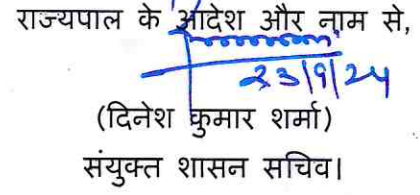 राज्यपाल के आदेश और नाम से,
23/9/24
(दिनेश कुमार शर्मा)
संयुक्त शासन सचिव।